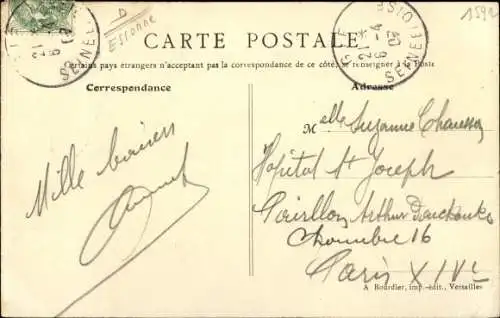 D
Essonne
CARTE POSTALE
Certains pays étrangers n'acceptant pas la correspondance de ce côté, se renseigner à la Poste
Correspondance
Adresse
Mille baisers
Melle Suzanne
Hôpital St Joseph
Pavillon Arthur
Chambre 16
Paris XIVe
A Bourdier, imp.-édit., Versailles